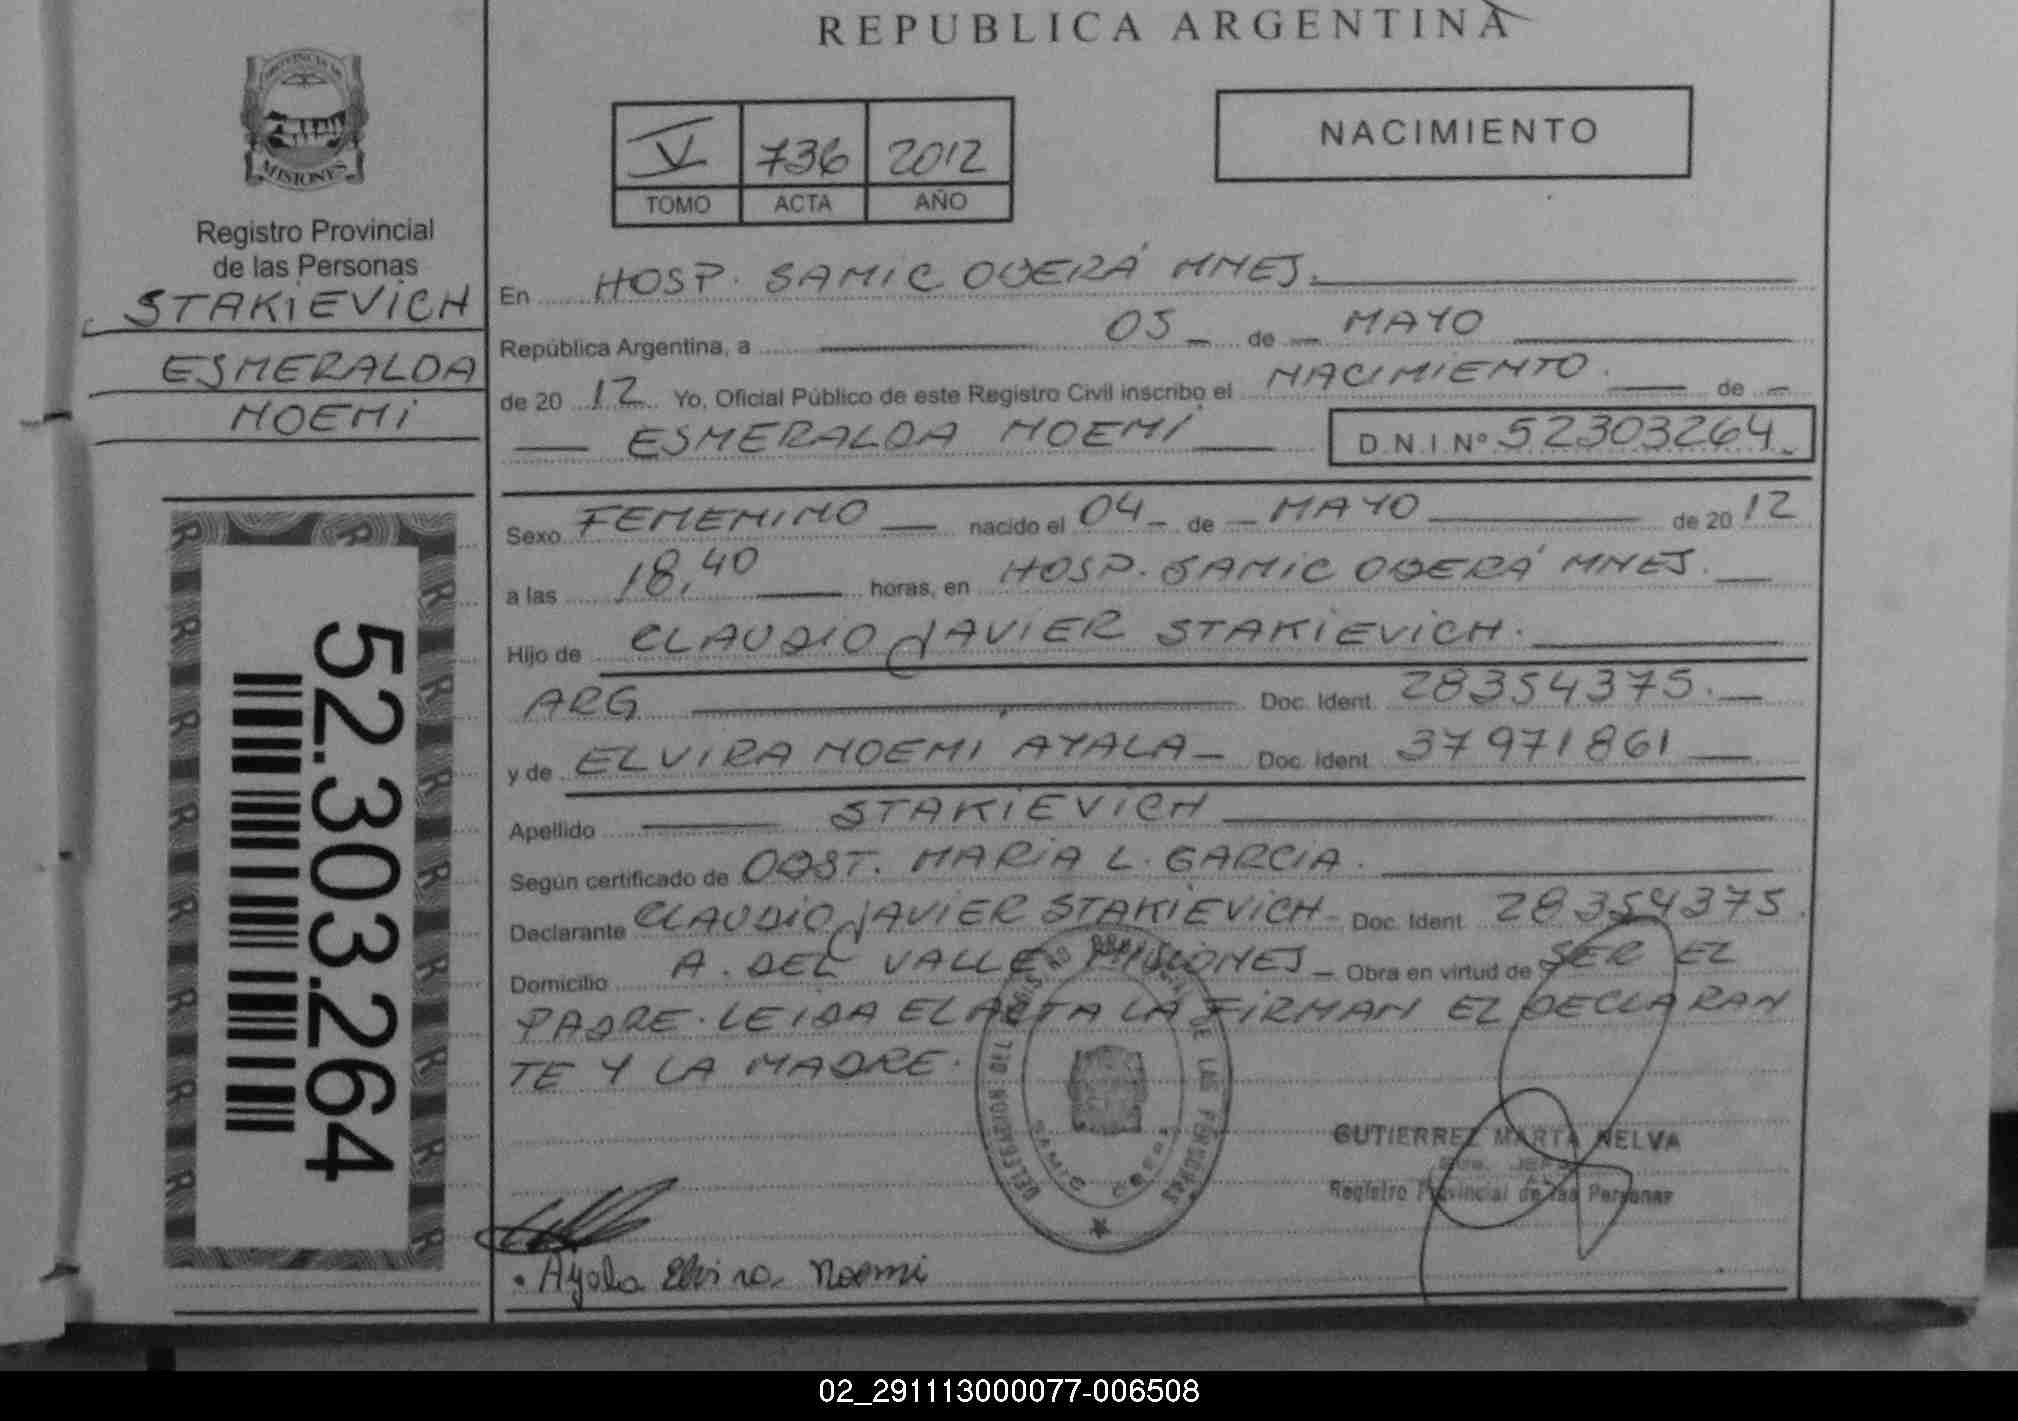 REPUBLICA ARGENTINA
PROVINCIA DE
MISIONES
Registro Provincial
de las Personas
STAKIEVICH
ESMERALDA
NOEMI
52.303.264
V 736 2012
TOMO ACTA AÑO
NACIMIENTO
En HOSP. SAMIC OBERÁ MNES.
República Argentina, a 05 de MAYO
de 20 12 Yo, Oficial Público de este Registro Civil inscribo el NACIMIENTO. de
ESMERALDA NOEMÍ D.N.I.Nº 52303264
Sexo FEMENINO nacido el 04 de MAYO de 20 12
a las 18,40 horas, en HOSP. SAMIC OBERÁ MNES.
Hijo de CLAUDIO JAVIER STAKIEVICH.
ARG Doc. Ident. 28354375.
y de ELVIRA NOEMI AYALA Doc. Ident. 37971861
Apellido STAKIEVICH
Según certificado de OBST. MARIA L. GARCIA.
Declarante CLAUDIO JAVIER STAKIEVICH Doc. Ident. 28354375.
Domicilio A. DEL VALLE MISIONES Obra en virtud de SER EL
PADRE. LEIDA EL ACTA LA FIRMAN EL DECLARAN
TE Y LA MADRE.
DELEGACION DEL REGISTRO PROVINCIAL DE LAS PERSONAS
SAMIC OBERA
GUTIERREZ MARTA NELVA
JEFE
Registro Provincial de las Personas
Ayala Elvira Noemi
02_291113000077-006508